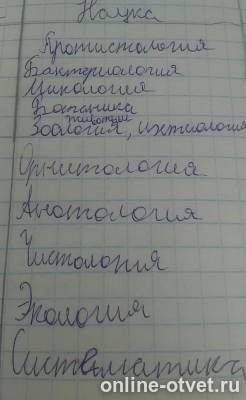 Наука
Протистология
Бактериология
Микология
Ботаника
животных
Зоология, ихтиология
Орнитология
Анатология
Чистология
Экология
Систематика
online-otvet.ru